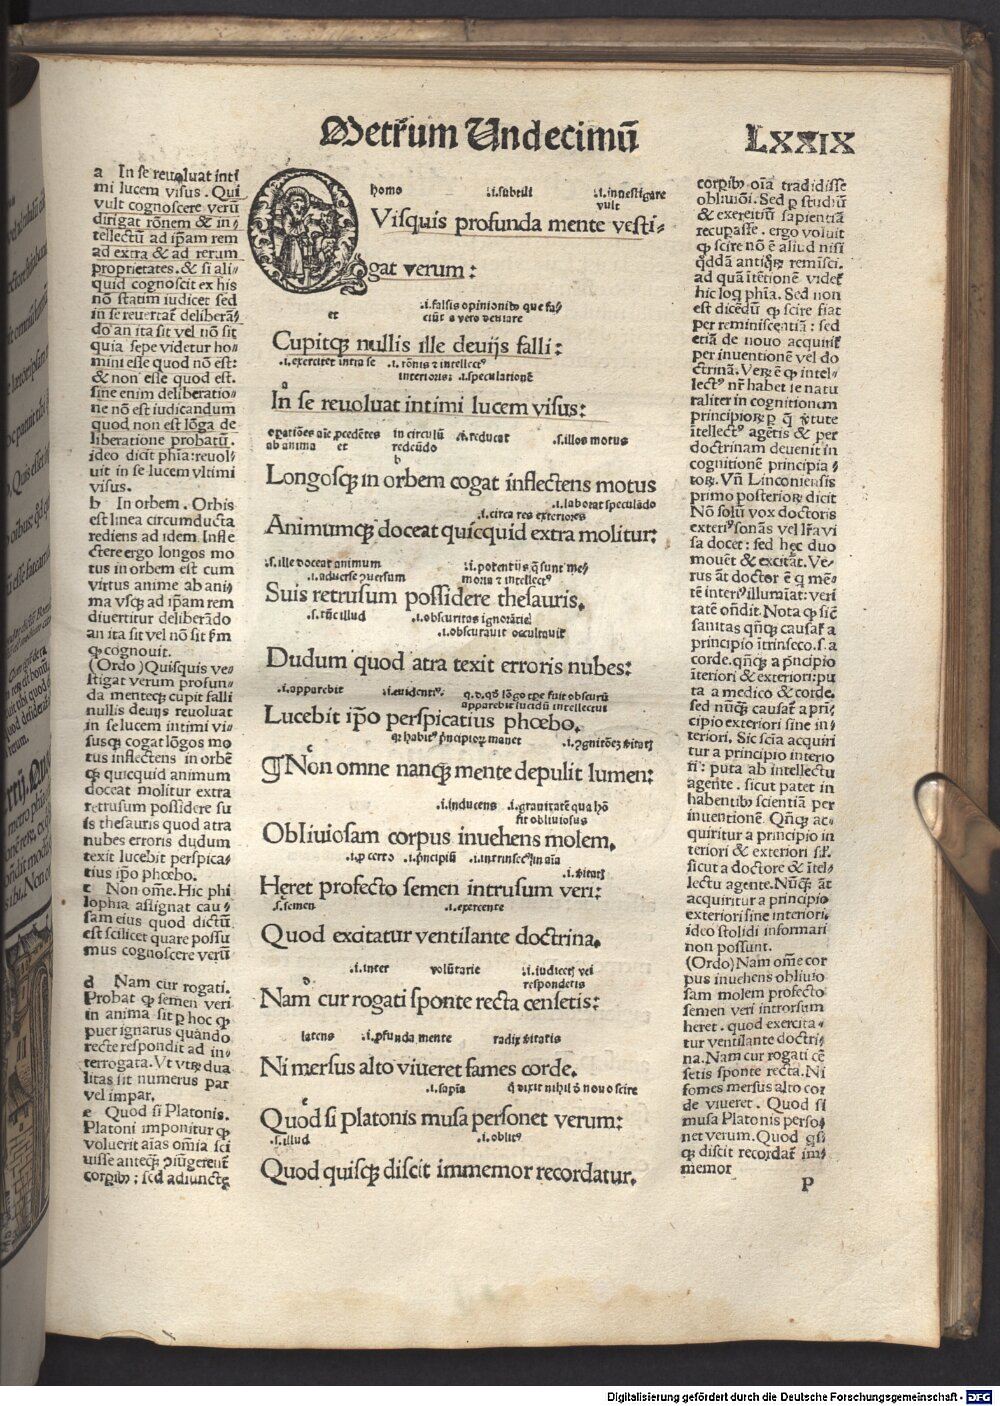 Metrum Undecimũ LXXIX
a In se reuoluat inti
mi lucem visus. Qui
vult cognoscere verũ
dirigat rõnem & in-
tellectũ ad ip̃am rem
ad extra & ad rerum
proprietates. & si ali-
quid cognoscit ex his
nõ statim iudicet sed
in se reuertat̃ deliberã-
do an ita sit vel nõ sit
quia sepe videtur ho-
mini esse quod nõ est:
& non esse quod est.
sine enim deliberatio-
ne nõ est iudicandum
quod non est lõga de
liberatione probatũ.
ideo dicit phĩa: reuol-
uit in se lucem vltimi
visus.
b In orbem. Orbis
est linea circumducta
rediens ad idem. Infle
ctere ergo longos mo
tus in orbem est cum
virtus anime ab ani-
ma vsq; ad ip̃am rem
diuertitur deliberãdo
an ita sit vel nõ sit p̃m
ꝙ cognouit.
(Ordo) Quisquis ve-
stigat verum profun-
da menteq; cupit falli
nullis deuijs reuoluat
in se lucem intimi vi-
susq; cogat lõgos mo
tus inflectens in orbẽ
ꝙ quicquid animum
doceat molitur extra
retrusum possidere su
is thesauris quod atra
nubes erroris dudum
texit lucebit perspica-
tius ip̃o phœbo.
c Non om̃e. Hic phi
losophia assignat cau-
sam eius quod dictũ
est scilicet quare possu
mus cognoscere verũ
d Nam cur rogati.
Probat ꝙ semen veri
in anima sit ꝑ hoc ꝙ
puer ignarus quando
recte respondit ad in-
terrogata. Vt vtrũ dua
litas sit numerus par
vel impar.
e Quod si Platonis.
Platoni imponitur ꝙ
voluerit aĩas om̃ia sci
uisse anteq̃; ꝯiũgerent̃
corꝑibꝰ; sed adiuncte
homo .i.subtili .i.inuestigare
vult
QVisquis profunda mente vesti-
gat verum:
.i.falsis opinionibꝰ que fa-
et ciũt a vero deuiare
Cupitq; nullis ille deuijs falli:
.i.exercitet intra se .i.rõnis ⁊ intellectꝰ
interioris: .i.speculationẽ
a
In se reuoluat intimi lucem visus:
in circulũ .i.reducat .s.illos motus
ab anima et redeũdo
b
Longosq; in orbem cogat inflectens motus
.i.laborat speculãdo
.i.circa res exteriores
Animumq; doceat quicquid extra molitur:
.s.ille doceat animum .i.potentijs q̃ sunt me-
.i.aduerse ꝯuersum moria ⁊ intellectꝰ
Suis retrusum possidere thesauris.
.s.tũc illud .i.obscuritas ignorãtie
.i.obscurauit occultauit
Dudum quod atra texit erroris nubes:
.i.apparebit .i.euidentiꝰ.
apparebit lucidũ intellectui
Lucebit ip̃o perspicatius phœbo.
c
¶ Non omne nanq; mente depulit lumen:
.i.inducens .i.grauitatẽ qua hõ
fit obliuiosus
Obliuiosam corpus inuehens molem.
.i.ꝑ certo .i.p̃ncipiũ .i.intrinsecꝰ in aĩa
Hęret profecto semen intrusum veri:
s.semen .i.exercente
Quod excitatur ventilante doctrina.
.i.inter volũtarie .i.iudicetꝭ vel
respondetis
d
Nam cur rogati sponte recta censetis:
latens .i.ꝓfunda mente radix veritatis
Ni mersus alto viueret fames corde.
.i.sapĩa q̃ dixit nihil õ nouo scire
e
Quod si Platonis musa personet verum:
.s.illud .i.oblitꝰ
Quod quisq; discit immemor recordatur.
corꝑibꝰ oĩa tradidisse
obliuiõi. Sed ꝑ studiũ
& exercitiũ sapientiã
recuꝑasse. ergo voluit
ꝙ scire nõ ẽ aliud nisi
q̃ddã antiq̃rũ remĩsci.
ad quã ĩtẽtionẽ videt̃
hic loq̃ phĩa. Sed non
est dicẽdũ ꝙ scire fiat
per reminiscentiã: sed
etiã de nouo acquirit̃
per inuentionẽ vel do
ctrinã. Verũ ẽ ꝙ intel-
lectꝰ nr̃ habet se natu
raliter in cognitionem
principiorũ ꝑ q̃ ꝟtute
ĩtellectꝰ agẽtis & per
doctrinam deuenit in
cognitionẽ principia-
torũ. Vñ Linconiensis
primo posteriorũ dicit
Nõ solũ vox doctoris
exteriꝰ sonãs vel lr̃a vi
sa docet: sed hęc duo
mouẽt & excitãt. Ve-
rus aũt doctor ẽ q̃ mẽ-
tẽ interiꝰ illumĩat: veri
tatẽ oñdit. Nota ꝙ sic̃
sanitas qñq; causat̃ a
principio ĩtrinseco. s. a
corde. qñq; a p̃ncipio
ĩteriori & exteriori: pu
ta a medico & corde.
sed nũq; causat̃ a pri-
cipio exteriori sine in-
teriori. Sic scĩa acquiri
tur a principio interio
ri: puta ab intellectu
agente. sicut patet in
habentibꝰ scientiã per
inuentionẽ. Qñq; ac-
quiritur a principio in
teriori & exteriori s.
sicut a doctore & ĩtel-
lectu agente. Nũq; aũt
acquiritur a principio
exteriori sine interiori.
ideo stolidi informari
non possunt.
(Ordo) Nam om̃e cor
pus inuehens obliuio
sam molem profecto
semen veri introrsum
heret. quod exercita-
tur ventilante doctri-
na. Nam cur rogati cẽ
setis sponte recta. Ni
fomes mersus alto cor
de viueret. Quod si
musa Platonis perso-
net verum. Quod q̃s-
q; discit recordat̃ im-
memor
P
Digitalisierung gefördert durch die Deutsche Forschungsgemeinschaft - DFG